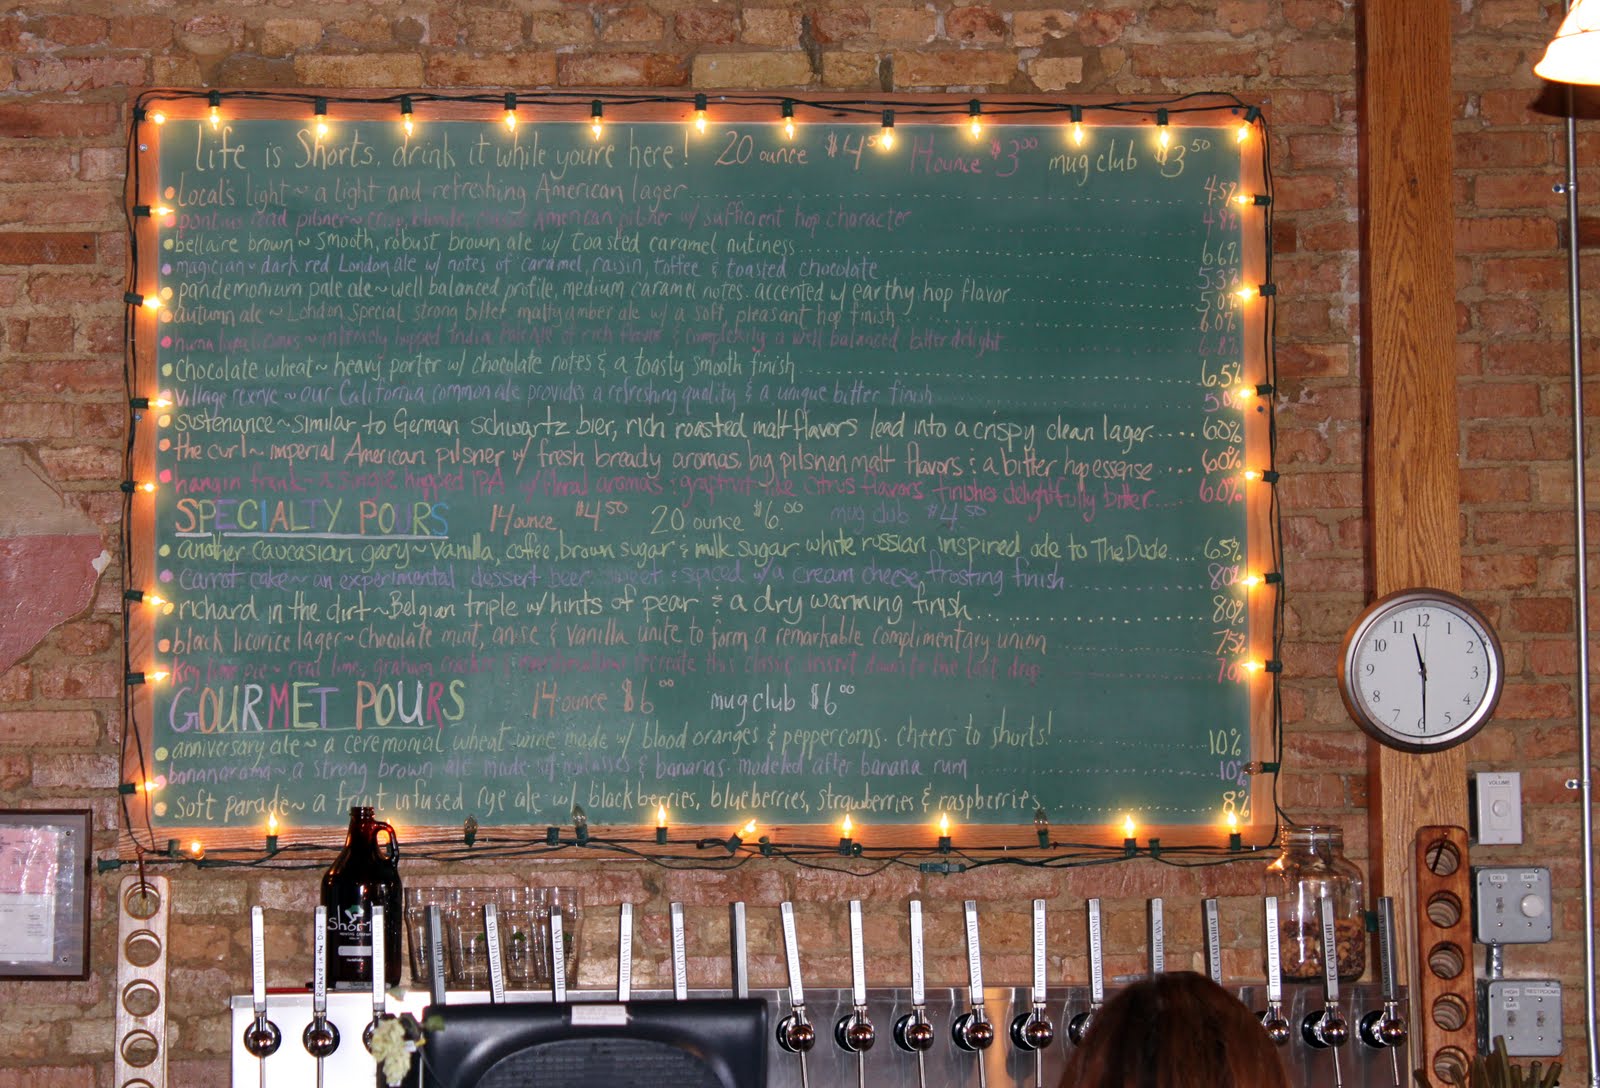 Life is Shorts, drink it while you're here! 20 ounce $4.50 14 ounce $3.00 mug club $3.50
local's light~ a light and refreshing American lager 4.5%
pontius road pilsner~ crisp, blonde, classic American pilsner w/ sufficient hop character 4.8%
bellaire brown~ smooth, robust brown ale w/ toasted caramel nuttiness 6.6%
magician~ dark red London ale w/ notes of caramel, raisin, toffee & toasted chocolate 5.3%
pandemonium pale ale~ well balanced profile, medium caramel notes accented w/ earthy hop flavor 5.0%
autumn ale~ London special strong bitter malty amber ale w/ a soft, pleasant hop finish 6.0%
intensely hopped India Pale Ale of rich flavor & complexity a well balanced bitter delight 6.8%
chocolate wheat~ heavy porter w/ chocolate notes & a toasty smooth finish 6.5%
village reserve~ our California common ale provides a refreshing quality & a unique bitter finish 5.0%
sustenance~ similar to German schwartz bier, rich roasted malt flavors lead into a crispy clean lager.... 6.0%
the curl~ imperial American pilsner w/ fresh bready aromas, big pilsner malt flavors & a bitter hop essense 6.0%
hangin frank~ a single hopped IPA w/ floral aromas & grapefruit like citrus flavors finishes delightfully bitter 6.0%
SPECIALTY POURS 14 ounce $4.50 20 ounce $6.00 mug club $4.50
another caucasian gary~ vanilla, coffee, brown sugar & milk sugar white russian inspired ode to The Dude.... 6.5%
carrot cake~ an experimental dessert beer, sweet & spiced w/ a cream cheese frosting finish 8.0%
richard in the dirt~ Belgian triple w/ hints of pear & a dry warming finish 8.0%
black licorice lager~ chocolate mint, anise & vanilla unite to form a remarkable complimentary union 7.5%
key lime pie~ real lime, graham cracker & marshmallow recreate this classic desert down to the last drop 7.0%
GOURMET POURS 14 ounce $6.00 mug club $6.00
anniversary ale~ a ceremonial wheat wine made w/ blood oranges & peppercorns. cheers to shorts! 10%
bananarama~ a strong brown ale made w/ molasses & bananas modeled after banana rum 10%
soft parade~ a fruit infused rye ale w/ blackberries, blueberries, strawberries & raspberries 8%
12
11 1
10 2
9 3
8 4
7 5
6
VOLUME
DELI BAR
HIGH BAR RESTROOMS
Short's
Richard in the Dirt
THE CURL
HUMALUPALICIOUS
THE MAGICIAN
HANGIN FRANK
ANNIVERSARY ALE
CHOCOLATE WHEAT
LOCAL'S LIGHT